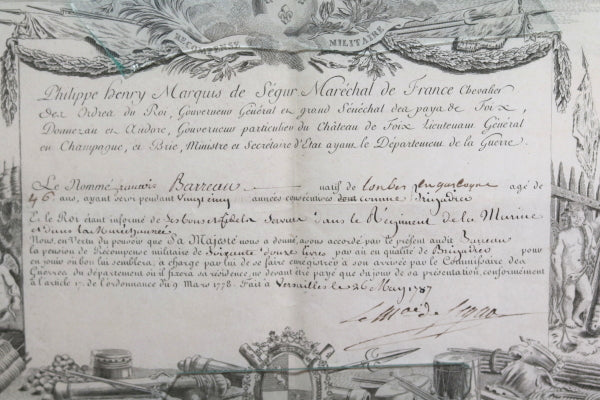 RECOMPENSE MILITAIRE
Philippe Henry Marquis de Ségur Maréchal de France Chevalier
des Ordres du Roi, Gouverneur Général et grand Sénéchal des pays de Foix,
Donnezan et Andore, Gouverneur particulier du Château de Foix Lieutenant Général
en Champagne, et Brie, Ministre et Secretaire d'Etat ayant le Département de la Guerre.
Le Nommé françois Barreau natif de Lombez en gascogne agé de
46 ans, ayant servi pendant Vingt cinq années consécutives dont comme Brigadier
Et le Roi étant informé de ses bons et fideles Services dans le Régiment de la Marine
et dans la Maréchaussée
Nous, en Vertu du pouvoir que Sa Majesté nous a donné, avons accordé par le présent audit Bareau
la pension de Récompense militaire de Soixante douze livres par an en qualité de Brigadier pour
en jouir où bon lui semblera, à charge par lui de se faire enregistrer à son arrivée par le Commissaire des
Guerres du département où il fixera sa résidence, ne devant être payé que du jour de sa présentation, conformément
à l'article 17. de l'ordonnance du 9 Mars 1778. Fait à Versailles le 26 May 1787
le Mal de Segur